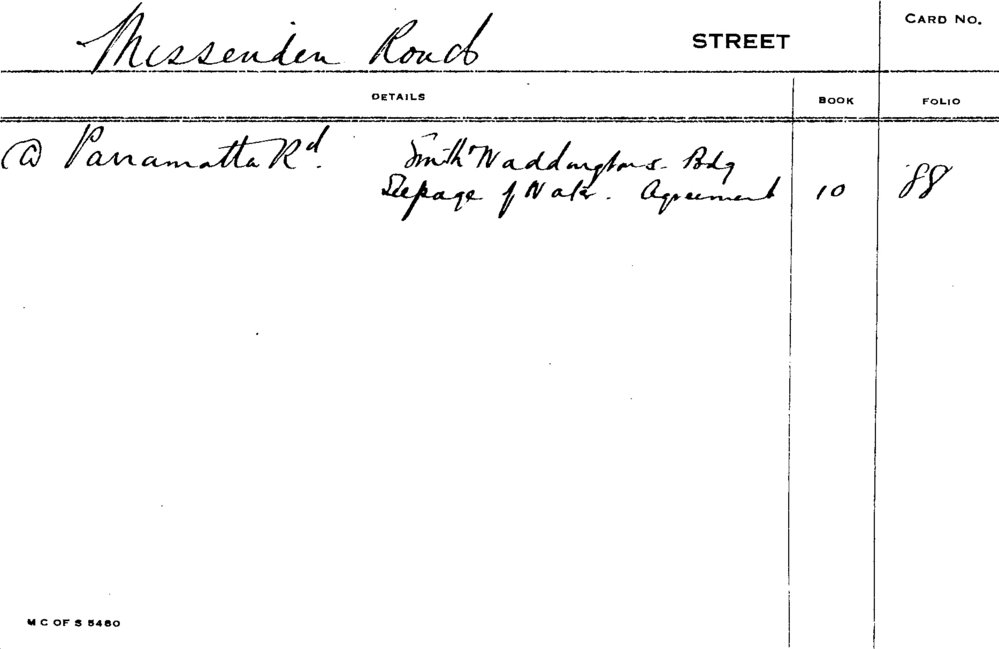 Missenden Road STREET CARD NO.
DETAILS BOOK FOLIO
@ Parramatta Rd. Smith & Waddingtons Bdg
Seepage of Water. Agreement 10 88
M C OF S 5460